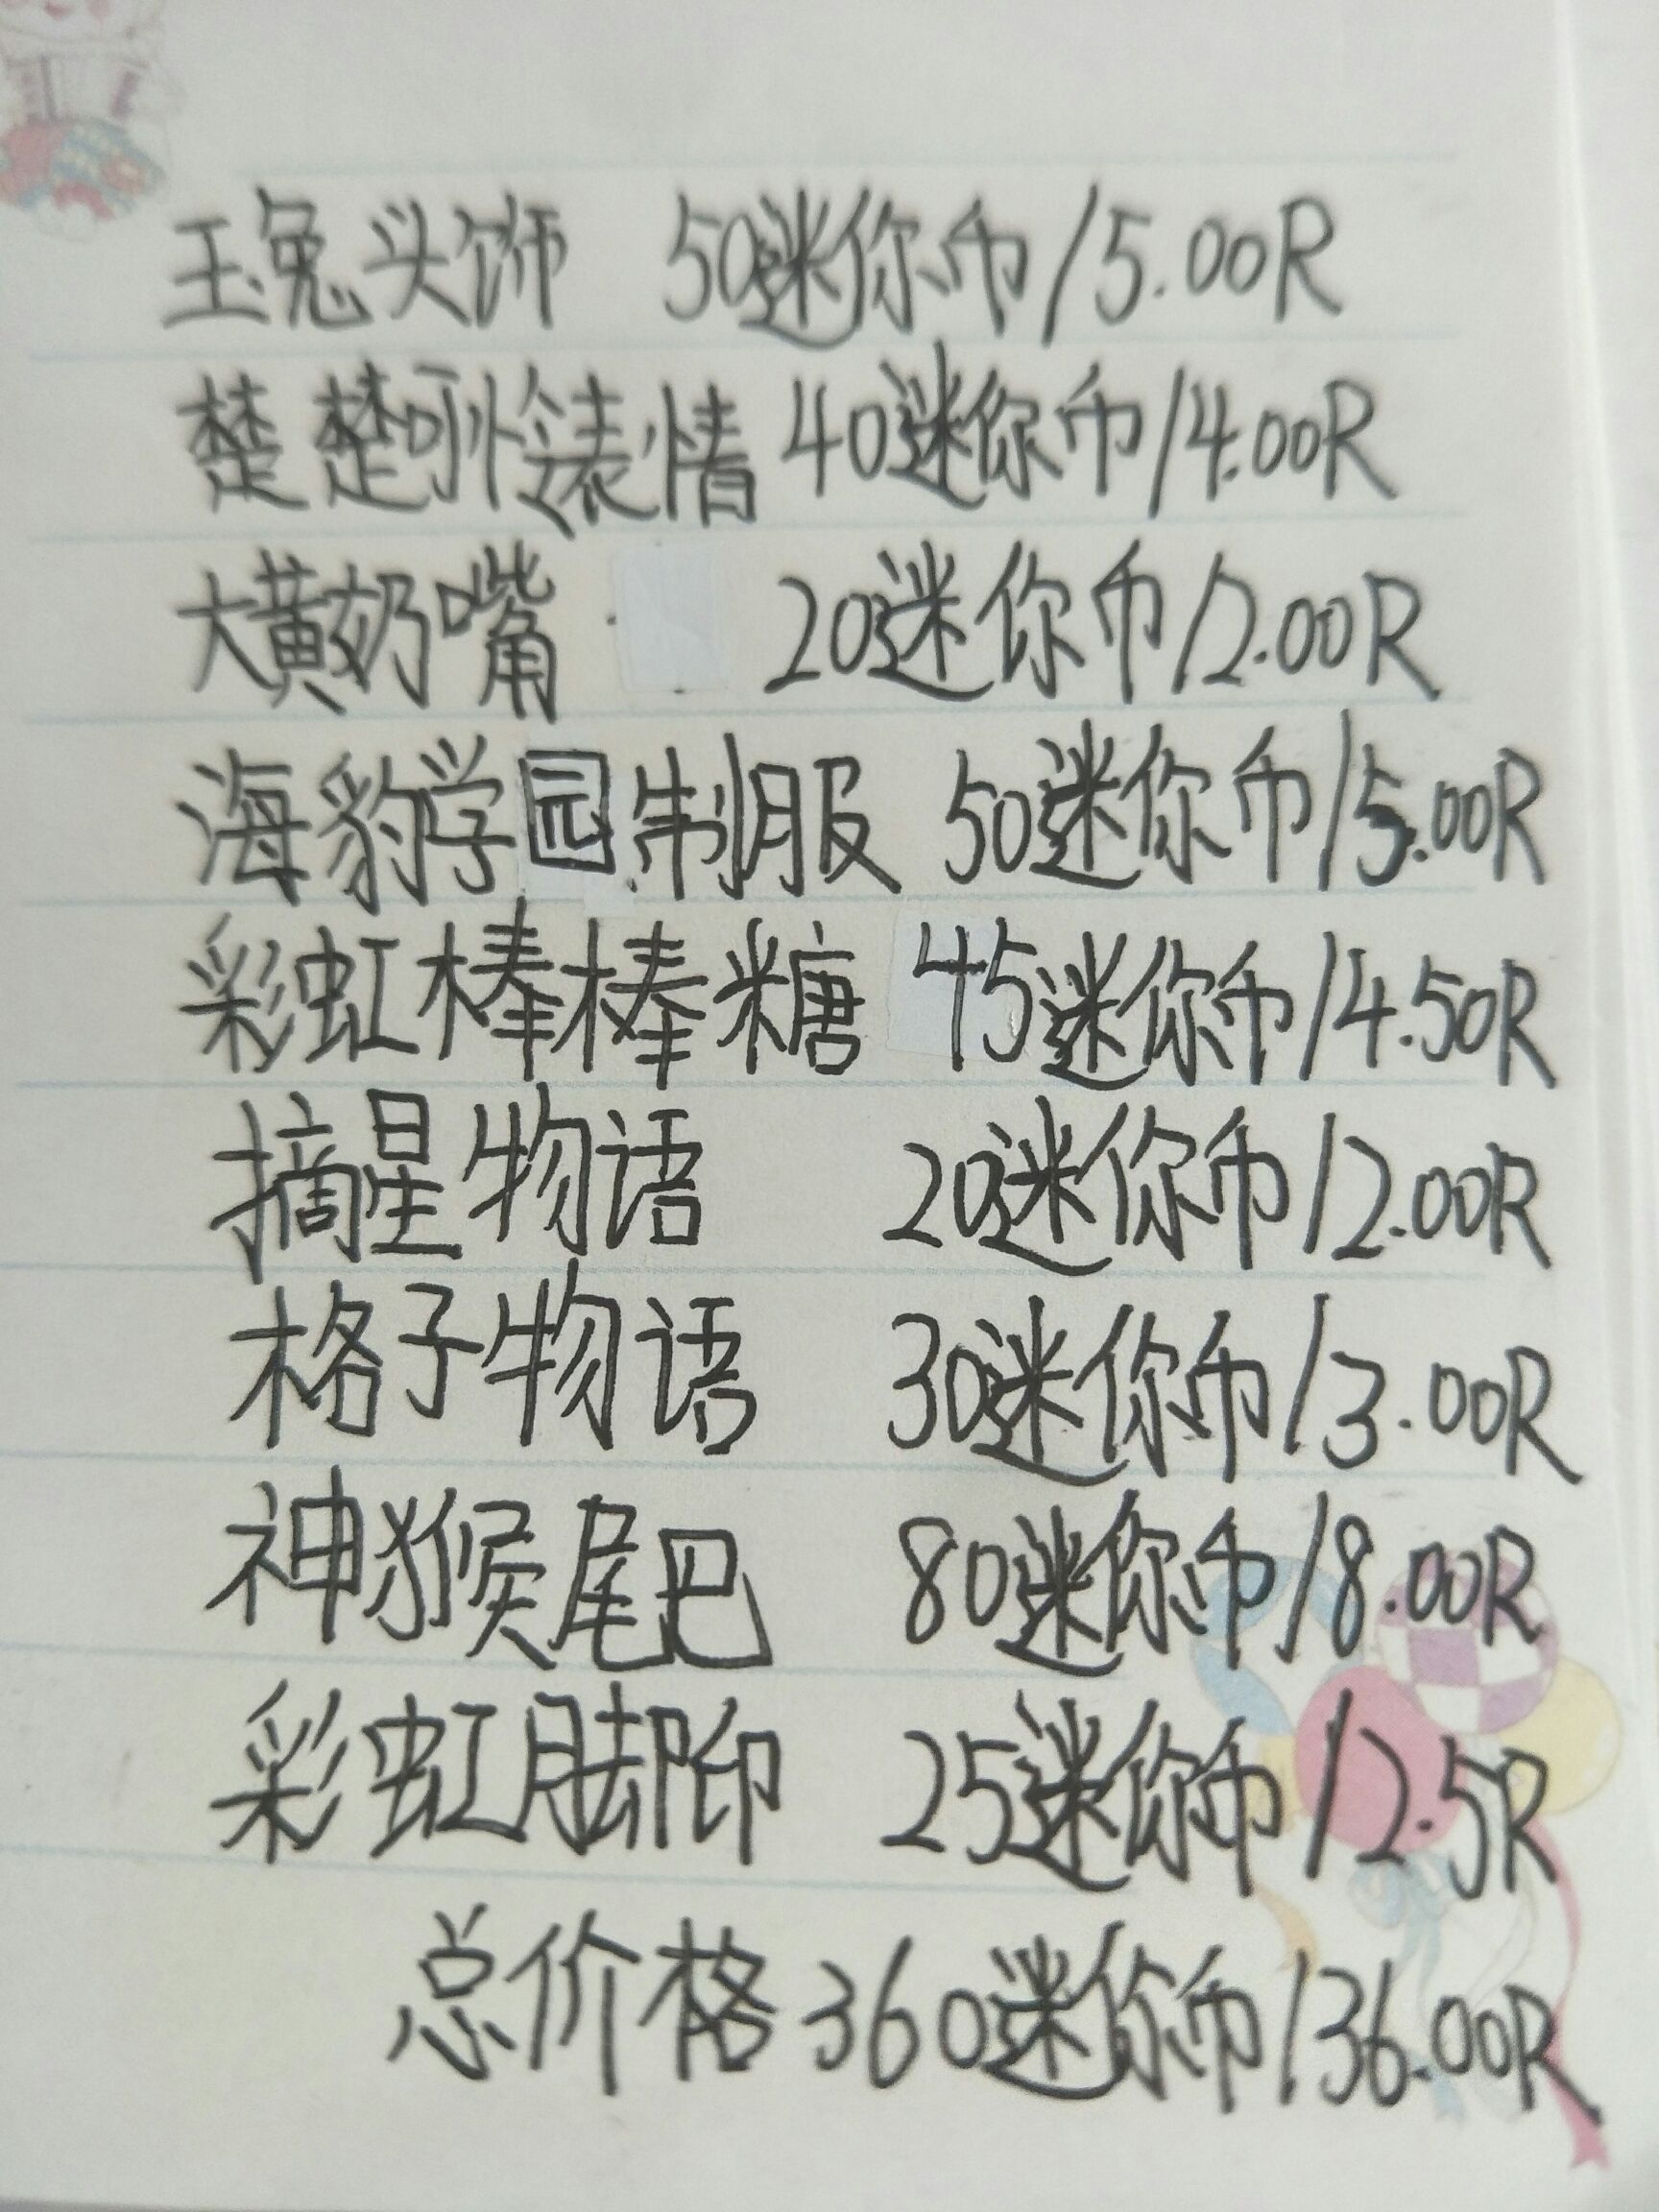 玉兔头饰 50迷你币/5.00R
楚楚可怜表情 40迷你币/4.00R
大黄奶嘴 20迷你币/2.00R
海豹学园制服 50迷你币/5.00R
彩虹棒棒糖 45迷你币/4.50R
摘星物语 20迷你币/2.00R
格子物语 30迷你币/3.00R
神猴尾巴 80迷你币/8.00R
彩虹脚印 25迷你币/2.5R
总价格360迷你币/36.00R